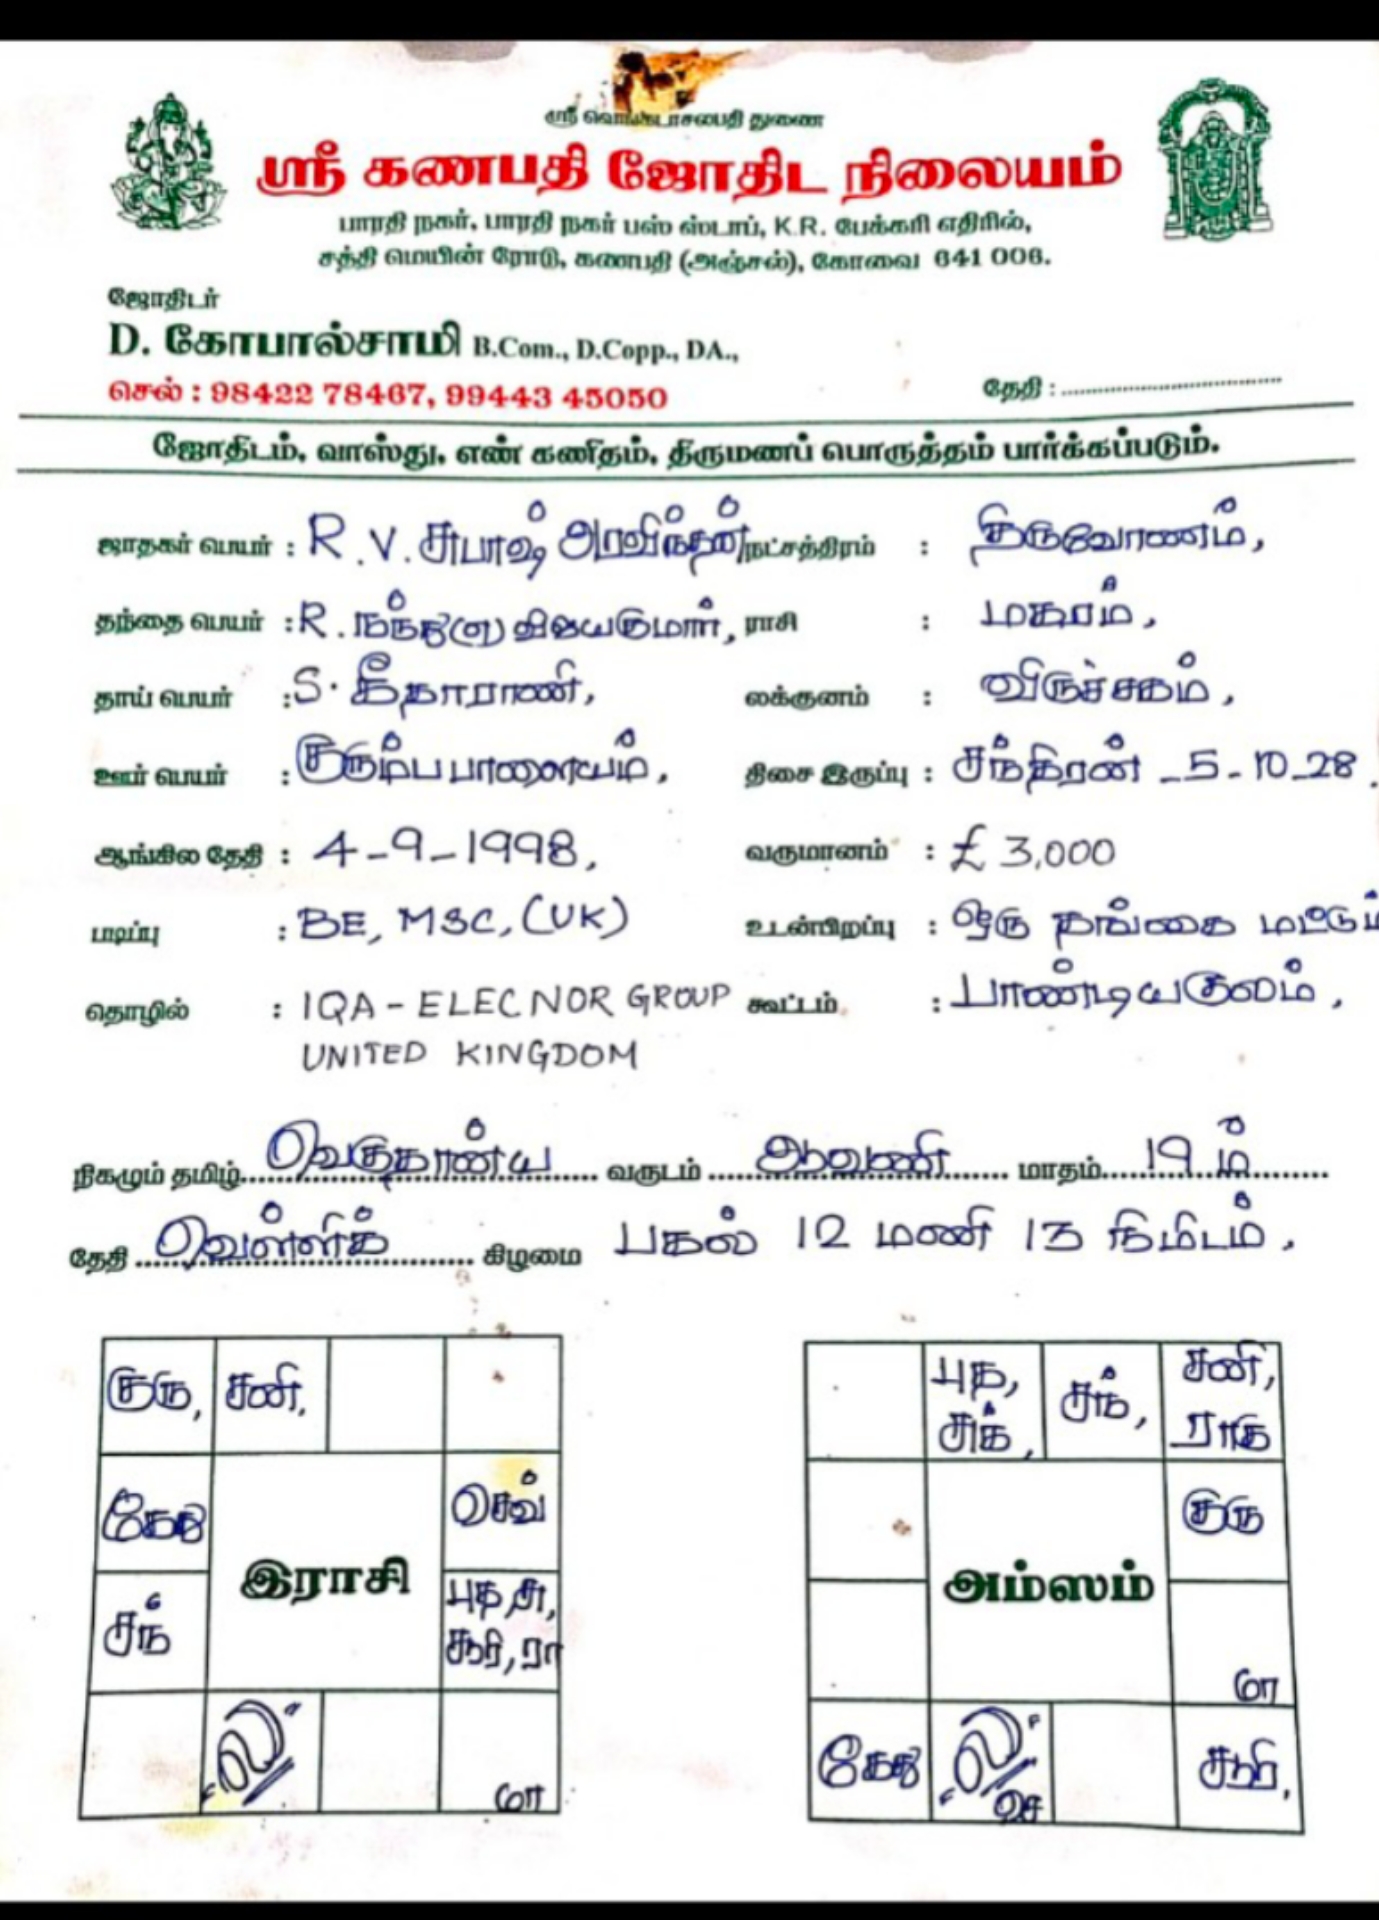 ஸ்ரீ வெங்கடாசலபதி துணை
ஸ்ரீ கணபதி ஜோதிட நிலையம்
பாரதி நகர், பாரதி நகர் பஸ் ஸ்டாப், K.R. பேக்கரி எதிரில்,
சத்தி மெயின் ரோடு, கணபதி (அஞ்சல்), கோவை 641 006.
ஜோதிடர்
D. கோபால்சாமி B.Com., D.Copp., DA.,
செல் : 98422 78467, 99443 45050 தேதி :
ஜோதிடம், வாஸ்து, எண் கணிதம், திருமணப் பொருத்தம் பார்க்கப்படும்.
ஜாதகர் பெயர் : R.V. சுபாஷ் அரவிந்தன் நட்சத்திரம் : திருவோணம்,
தந்தை பெயர் : R. நந்து (எ) விஜயகுமார், ராசி : மகரம்,
தாய் பெயர் : S. கீதாராணி, லக்குனம் : விருச்சகம்,
ஊர் பெயர் : குரும்பபாளையம், திசை இருப்பு : சந்திரன் - 5 - 10 - 28.
ஆங்கில தேதி : 4-9-1998, வருமானம் : £ 3,000
படிப்பு : BE, MSC, (UK) உடன்பிறப்பு : ஒரு தங்கை மட்டும்
தொழில் : IQA - ELECNOR GROUP கூட்டம் : பாண்டியகுலம்,
UNITED KINGDOM
நிகழும் தமிழ் வெகுதான்ய வருடம் ஆவணி மாதம் 19 ம்
தேதி வெள்ளிக் கிழமை பகல் 12 மணி 13 நிமிடம்,
குரு, சனி,
கேது செவ்
இராசி
சந் புத சு,
சூரி, ரா
ல மா
புத, சுக், சந், சனி, ராகு
குரு
அம்ஸம்
மா
கேது ல செ சூரி,